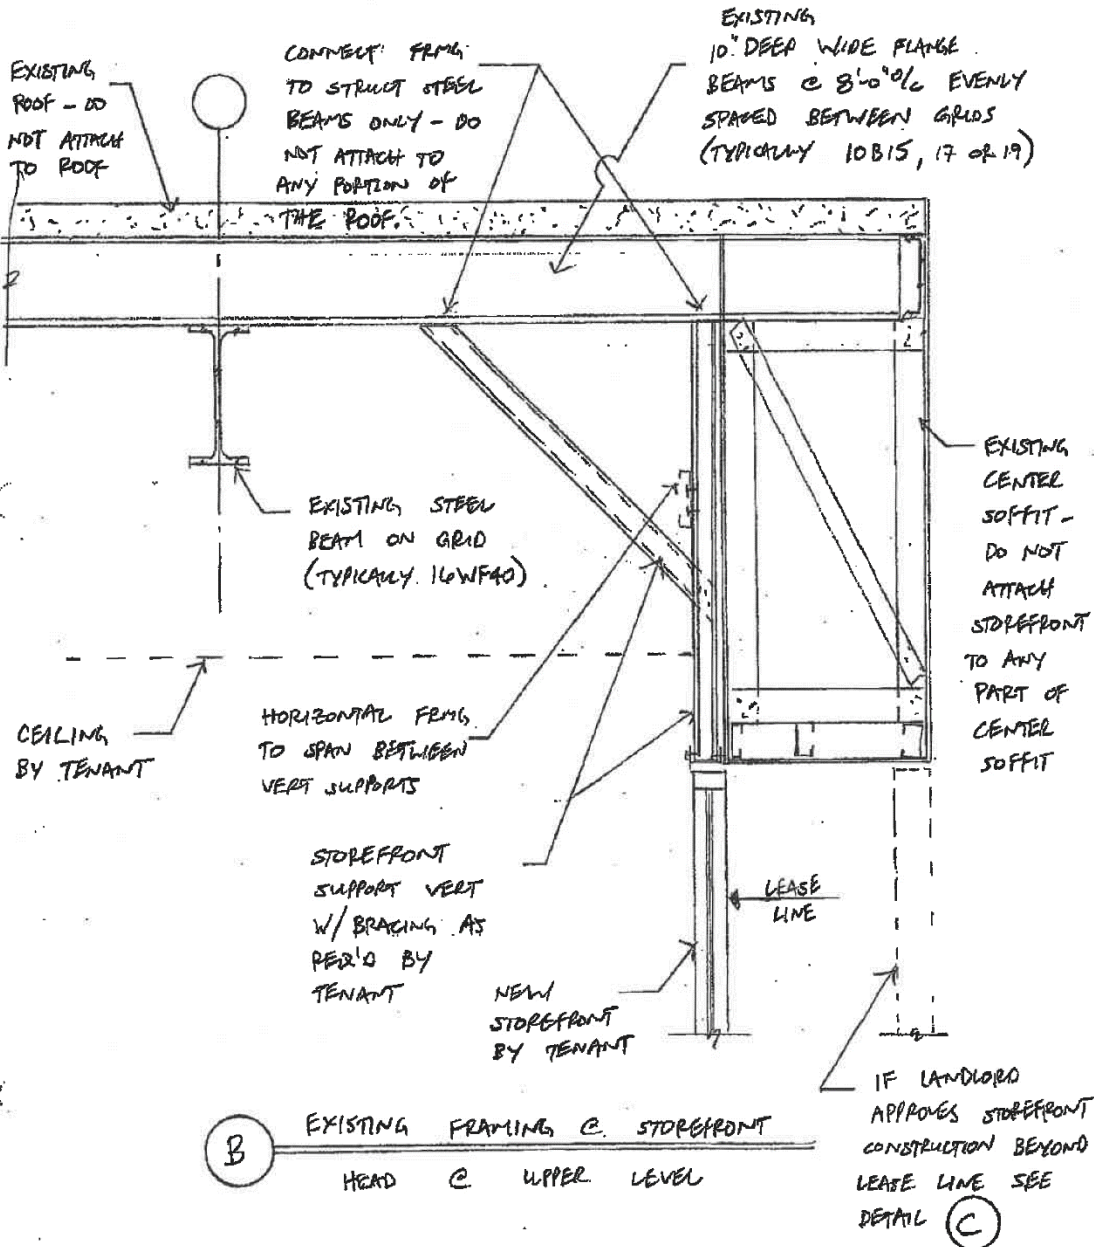 EXISTING
ROOF - DO
NOT ATTACH
TO ROOF
CONNECT FRMG
TO STRUCT STEEL
BEAMS ONLY - DO
NOT ATTACH TO
ANY PORTION OF
THE ROOF.
EXISTING
10" DEEP WIDE FLANGE
BEAMS @ 8'-0" O/C EVENLY
SPACED BETWEEN GRIDS
(TYPICALLY 10B15, 17 OR 19)
EXISTING STEEL
BEAM ON GRID
(TYPICALLY 16WF40)
EXISTING
CENTER
SOFFIT -
DO NOT
ATTACH
STOREFRONT
TO ANY
PART OF
CENTER
SOFFIT
CEILING
BY TENANT
HORIZONTAL FRMG
TO SPAN BETWEEN
VERT SUPPORTS
STOREFRONT
SUPPORT VERT
W/ BRACING AS
REQ'D BY
TENANT
LEASE
LINE
NEW
STOREFRONT
BY TENANT
IF LANDLORD
APPROVES STOREFRONT
CONSTRUCTION BEYOND
LEASE LINE SEE
DETAIL C
B
EXISTING FRAMING @ STOREFRONT
HEAD @ UPPER LEVEL